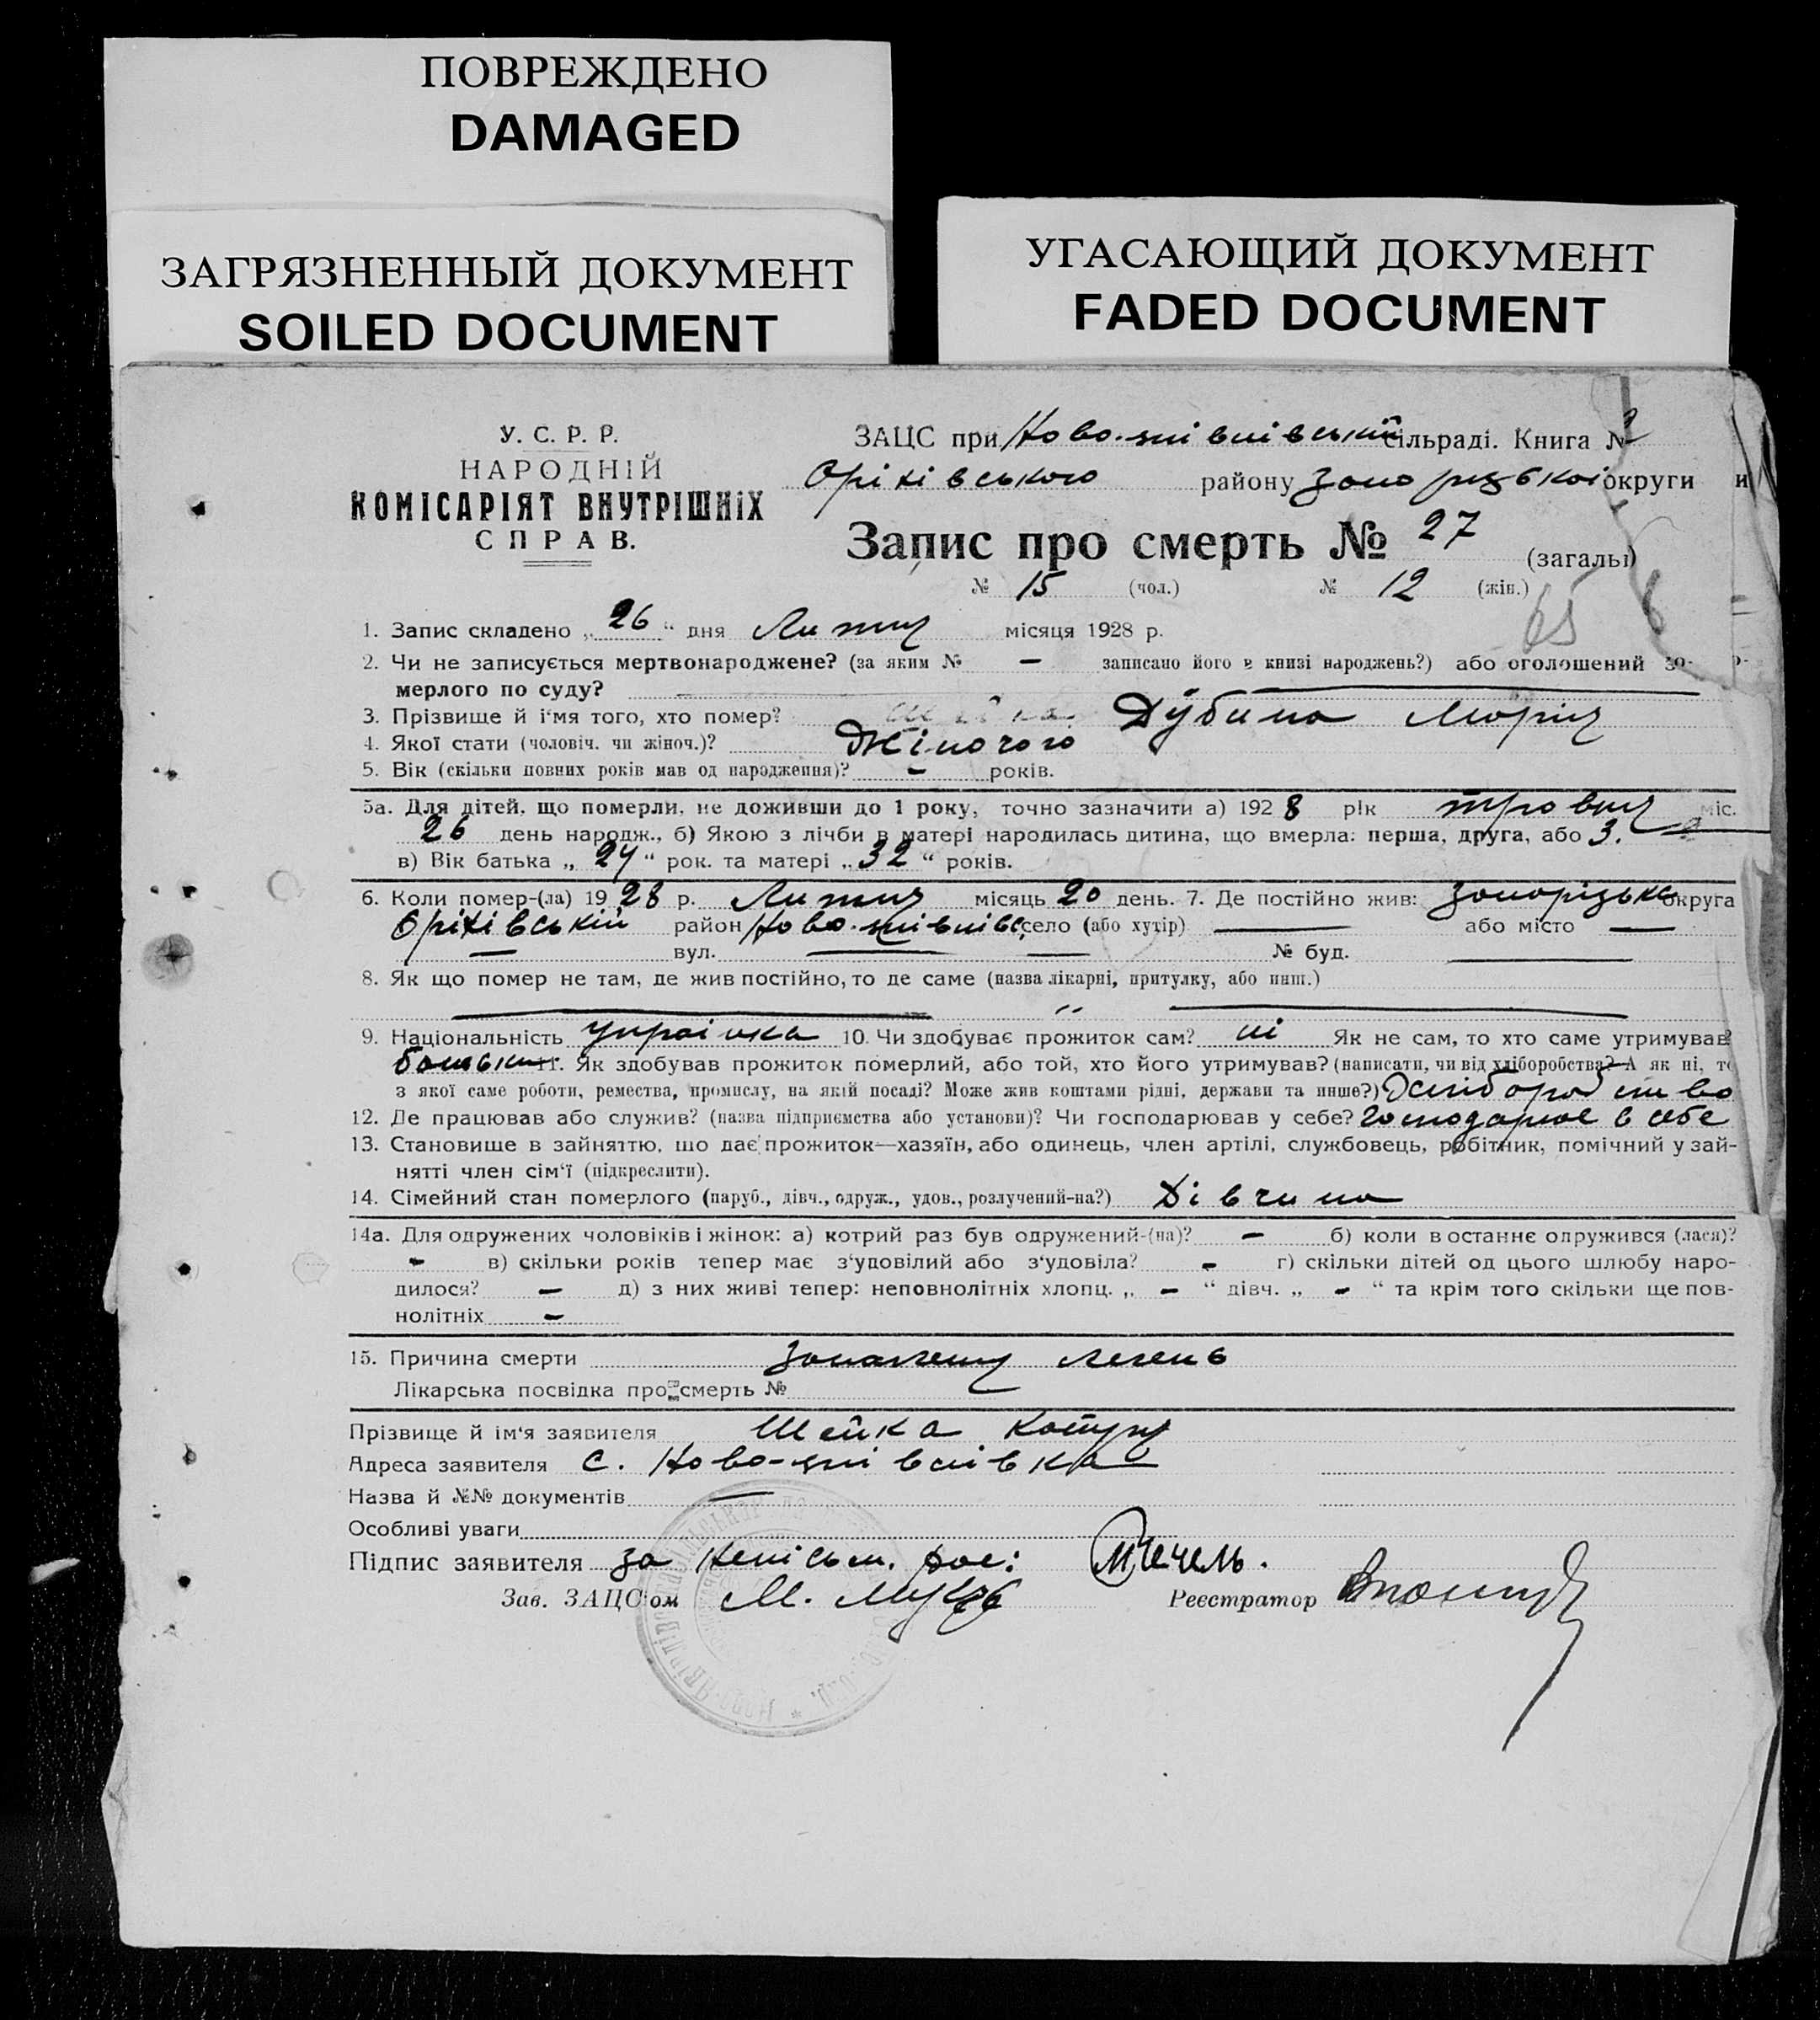 ПОВРЕЖДЕНО
DAMAGED
ЗАГРЯЗНЕННЫЙ ДОКУМЕНТ
SOILED DOCUMENT
УГАСАЮЩИЙ ДОКУМЕНТ
FADED DOCUMENT
У. С. Р. Р.
НАРОДНІЙ
КОМІСАРІЯТ ВНУТРІШНІХ
СПРАВ.
ЗАЦС при сільраді. Книга №
Оріхівського району Запорізької округи
Запис про смерть № 27 (загальн)
№ 15 (чол.) № 12 (жін.)
65
1. Запис складено „ 26 “ дня Лютня місяця 1928 р.
2. Чи не записується мертвонароджене? (за яким № — записано його в книзі народжень?) або оголошений по-
мерлого по суду?
3. Прізвище й і‘мя того, хто помер? Дубина Марія
4. Якої стати (чоловіч. чи жіноч.)? Жіночого
5. Вік (скільки повних років мав од народження)? — років.
5а. Для дітей, що померли, не доживши до 1 року, точно зазначити а) 1928 рік травня міс.
26 день народж., б) Якою з лічби в матері народилась дитина, що вмерла: перша, друга, або 3.
в) Вік батька „ 24 “ рок. та матері „ 32 “ років.
6. Коли помер-(ла) 1928 р. Лютня місяць 20 день. 7. Де постійно жив: Запорізька округа
Оріхівський район село (або хутір) — або місто —
— вул. — — № буд. —
8. Як що помер не там, де жив постійно, то де саме (назва лікарні, притулку, або инш.)
— „ —
9. Національність Українка 10. Чи здобуває прожиток сам? ні Як не сам, то хто саме утримував?
батьки 11. Як здобував прожиток померлий, або той, хто його утримував? (написати, чи від хліборобства? А як ні, то
з якої саме роботи, ремества, промислу, на якій посаді? Може жив коштами рідні, держави та инше?) Хліборобство
12. Де працював або служив? (назва підприємства або установи)? Чи господарював у себе? господарює в себе
13. Становище в зайняттю, що дає прожиток—хазяїн, або одинець, член артілі, службовець, робітник, помічний у зай-
нятті член сім‘ї (підкреслити).
14. Сімейний стан померлого (паруб., дівч., одруж., удов., розлучений-на?) Дівчина
14а. Для одружених чоловіків і жінок: а) котрий раз був одружений-(на)? — б) коли в останнє одружився (лася)?
— в) скільки років тепер має з‘удовілий або з‘удовіла? — г) скільки дітей од цього шлюбу наро-
дилося? — д) з них живі тепер: неповнолітніх хлопц. „ — “ дівч. „ — “ та крім того скільки ще пов-
нолітніх —
15. Причина смерти Запаленя легень
Лікарська посвідка про смерть №
Прізвище й ім‘я заявителя Шейка
Адреса заявителя с.
Назва й №№ документів —
Особливі уваги
Підпис заявителя за Мечель.
Зав. ЗАЦС‘ом М. Реєстратор